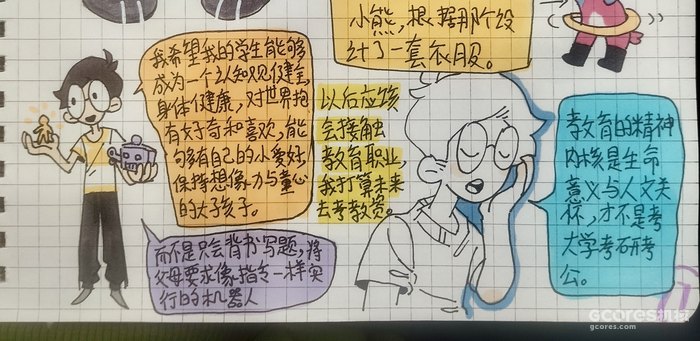 小熊，根据那个设
计了一套衣服。
我希望我的学生能够
成为一个认知观健全，
身体健康，对世界抱
有好奇和喜欢，能
够有自己的小爱好，
保持想像力与童心
的大孩子。
而不是只会背书写题，将
父母要求像指令一样实
行的机器人
以后应该
会接触
教育职业，
我打算未来
去考教资。
教育的精神
内核是生命
意义与人文关
怀，才不是考
大学考研考
公。
GCORES机核
gcores.com